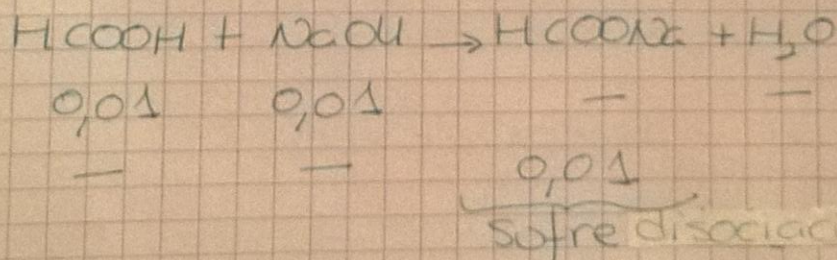 HCOOH + NaOH → HCOONa + H₂O
0,01 0,01 — —
— — 0,01
sufre disociac